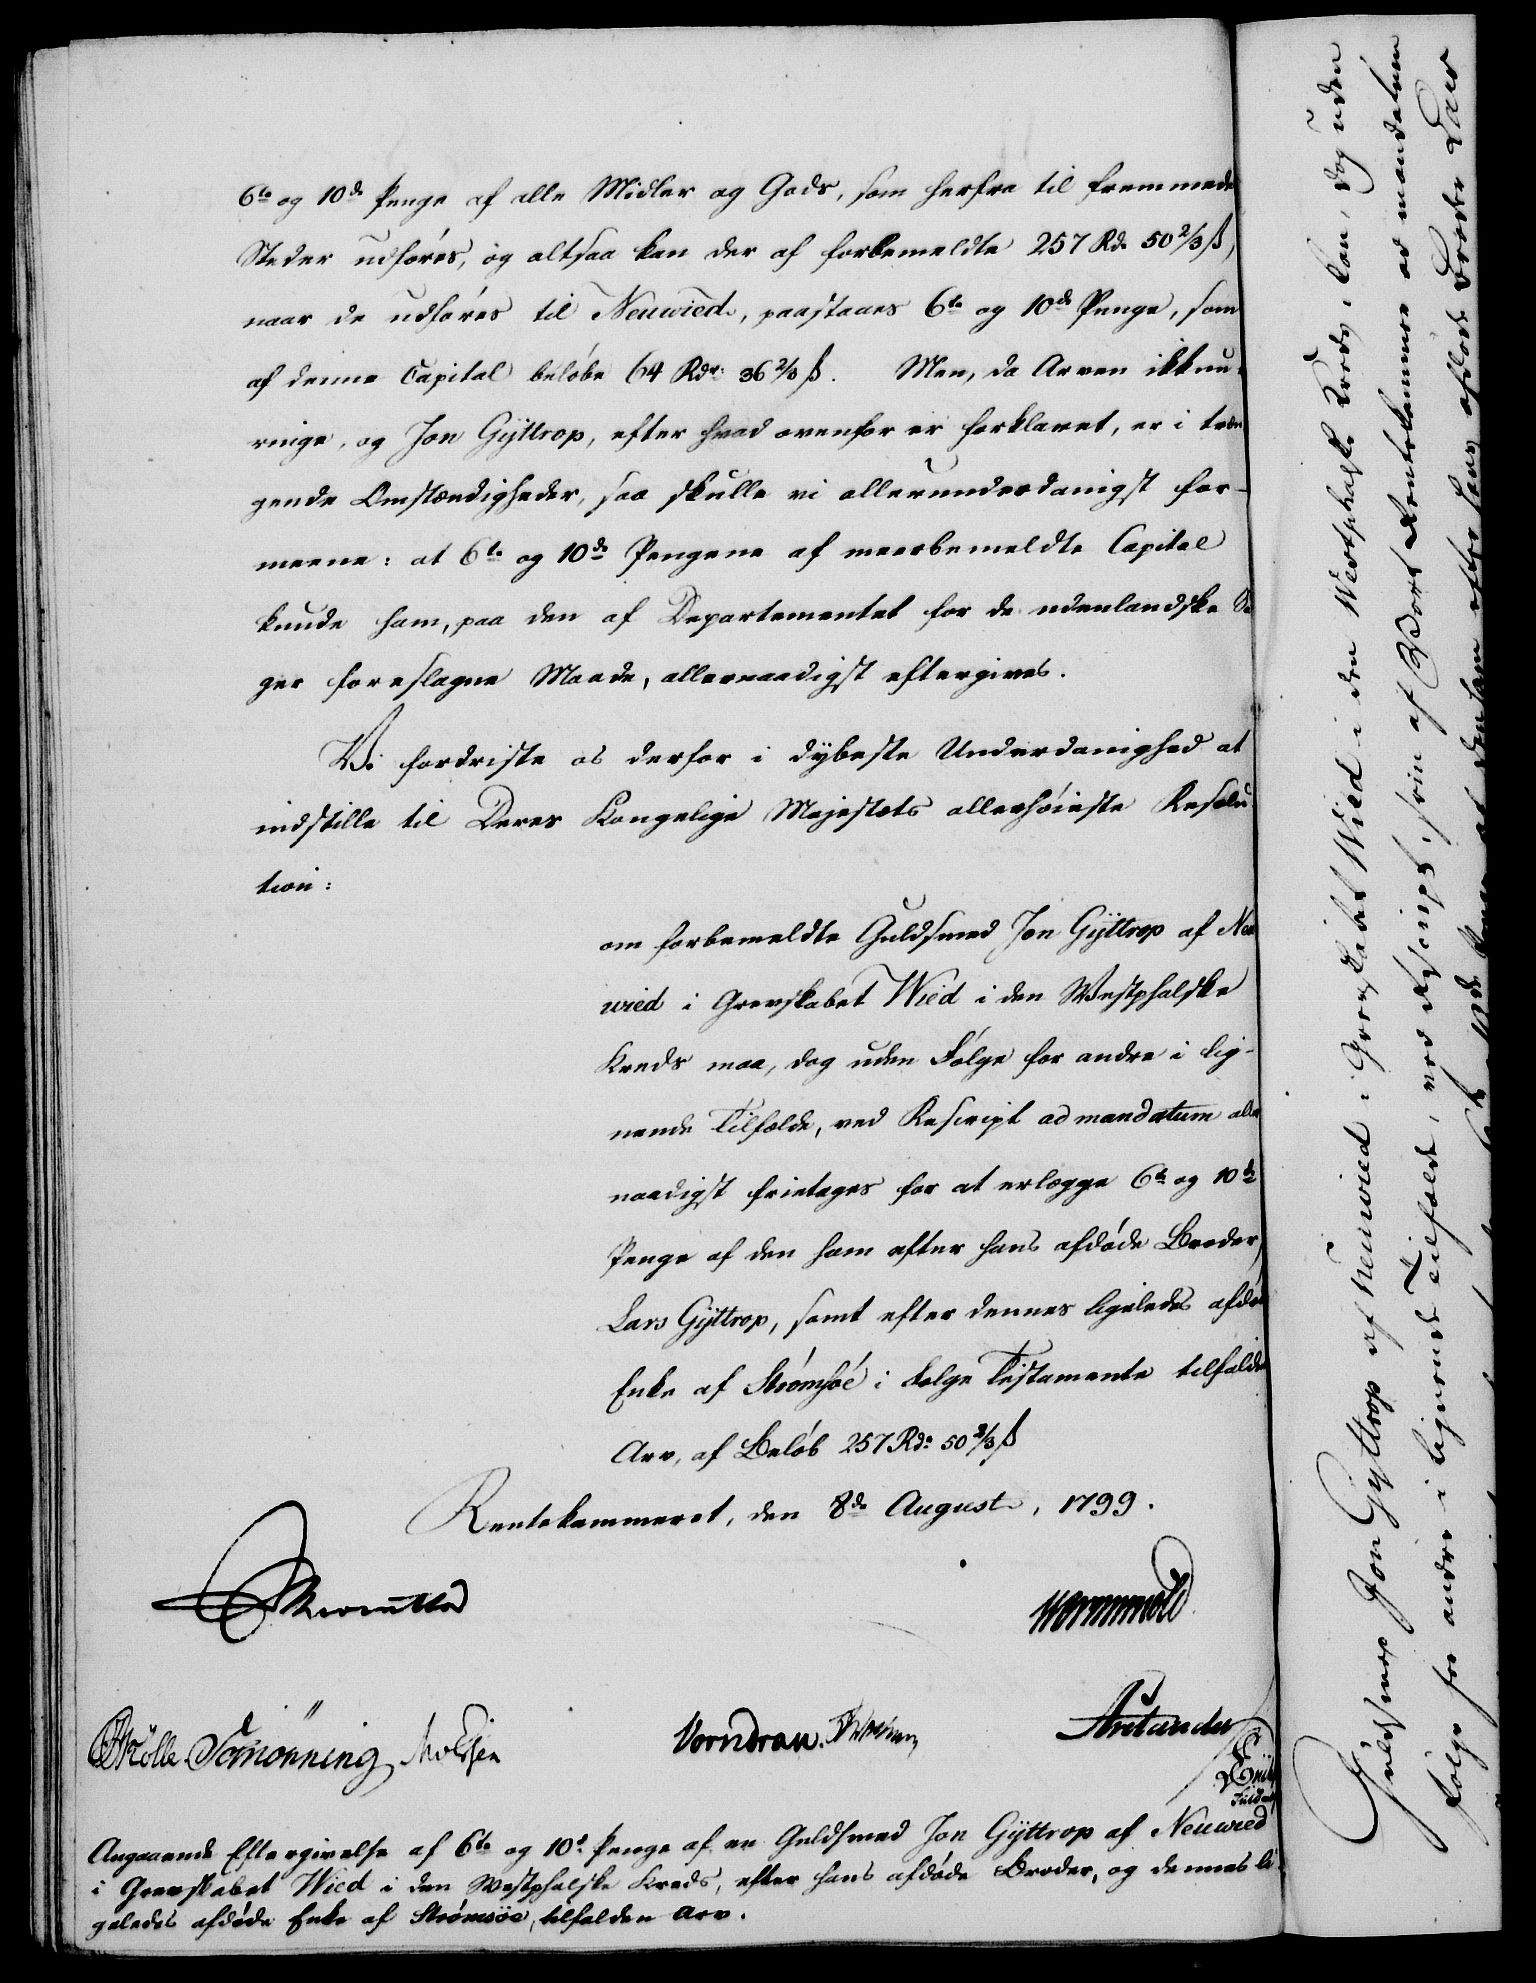 6te og 10de Penge af alle Midler og Gods, som herfra til fremmede
Steder udføres, og altsaa kan der af forbemeldte 257 Rd. 50 2/3 ß,
naar de udføres til Neuwied, paastaaes 6te og 10de Penge, som
af denne Capital beløbe 64 Rdr: 36 2/3 ß. Men, da Arven ikkun er
ringe, og Jon Gyttrop, efter hvad ovenfor er forklaret, er i træn
gende Omstændigheder, saa skulle vi allerunderdanigst for-
meene: at 6te og 10de Pengene af meerbemeldte Capital
kunde ham, paa den af Departementet for de udenlandske Sa
ger foreslagne Maade, allernaadigst eftergives.
Vi fordriste os derfor i dybeste Underdanighed at
indstille til Deres Kongelige Majestæts allerhøieste Resolu-
tion:
om forbemeldte Guldsmed Jon Gyttrop af Neu
wied i Grevskabet Wied i den Westphalske
Kreds maa, dog uden Følge for andre i lig-
nende Tilfælde, ved Rescript ad mandatum aller
naadigst fritages for at erlægge 6te og 10de
Penge af den ham efter hans afdøde Broder,
Lars Gyttrop, samt efter dennes ligeledes afdøde
Enke af Strømsøe i Følge Testamente tilfaldne
Arv, af Beløb 257 Rd. 50 2/3 ß
Rentekammeret, den 8de August, 1799.
Wormskiold
Schiönning
Vorndran.
Angaaende Eftergivelse af 6te og 10de Penge af en Guldsmed Jon Gyttrop af Neuwied
i Grevskabet Wied i den Westphalske Kreds, efter hans afdøde Broder, og dennes li-
geledes afdøde Enke af Strømsöe, tilfalden Arv.
Guldsmed Jon Gyttrop af Neuwied i Grevskabet Wied i den Westphalske Kreds, kan, dog uden
Følge for andre i lignende Tilfælde, ved Rescript, som af Vort Rentekammer ad mandatum